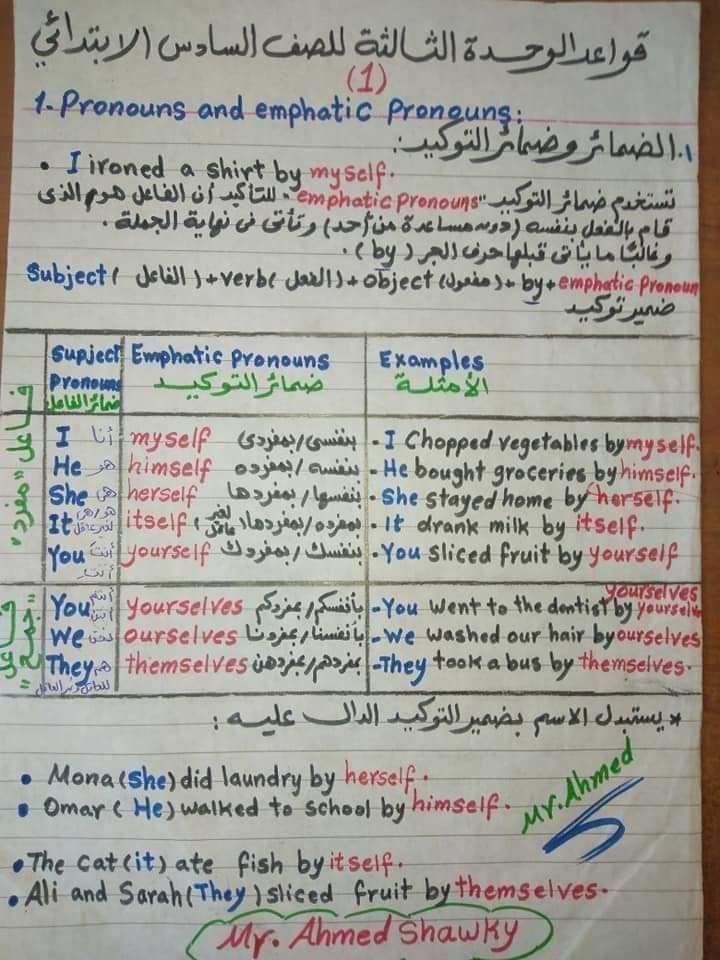 قواعد الوحدة الثالثة للصف السادس الابتدائي
(1)
1. Pronouns and emphatic Pronouns:
١. الضمائر وضمائر التوكيد:
• I ironed a shirt by myself.
تستخدم ضمائر التوكيد "emphatic Pronouns" للتأكيد أن الفاعل هو من الذى
قام بالفعل بنفسه (دون مساعدة من أحد) وتأتى فى نهاية الجملة.
وغالبًا ما يأتى قبلها حرف الجر (by).
Subject (الفاعل) + verb (الفعل) + object (مفعول) + by + emphatic Pronoun
ضمير توكيد
Supject Pronouns ضمائر الفاعل | Emphatic Pronouns ضمائر التوكيد | Examples الأمثلة
فاعل "مفرد"
I أنا | myself بنفسى/بمفردى | - I Chopped vegetables by myself.
He هو | himself بنفسه/بمفرده | - He bought groceries by himself.
She هى | herself بنفسها/بمفردها | - She stayed home by herself.
It هو/هى لغير عاقل | itself بمفرده/بمفردها (لغير عاقل) | - It drank milk by itself.
You أنتَ أنتِ | yourself بنفسك/بمفردك | - You sliced fruit by yourself
فاعل "جمع"
yourselves
You أنتم | yourselves بأنفسكم/بمفردكم | - You went to the dentist by yourselve
We نحن | ourselves بأنفسنا/بمفردنا | - We washed our hair by ourselves
They هم | themselves بمفردهم/بمفردهن | - They took a bus by themselves.
* يستبدل الاسم بضمير التوكيد الدال عليه:
• Mona (She) did laundry by herself.
• Omar (He) walked to school by himself.
Mr. Ahmed
• The cat (it) ate fish by itself.
• Ali and Sarah (They) sliced fruit by themselves.
Mr. Ahmed Shawky